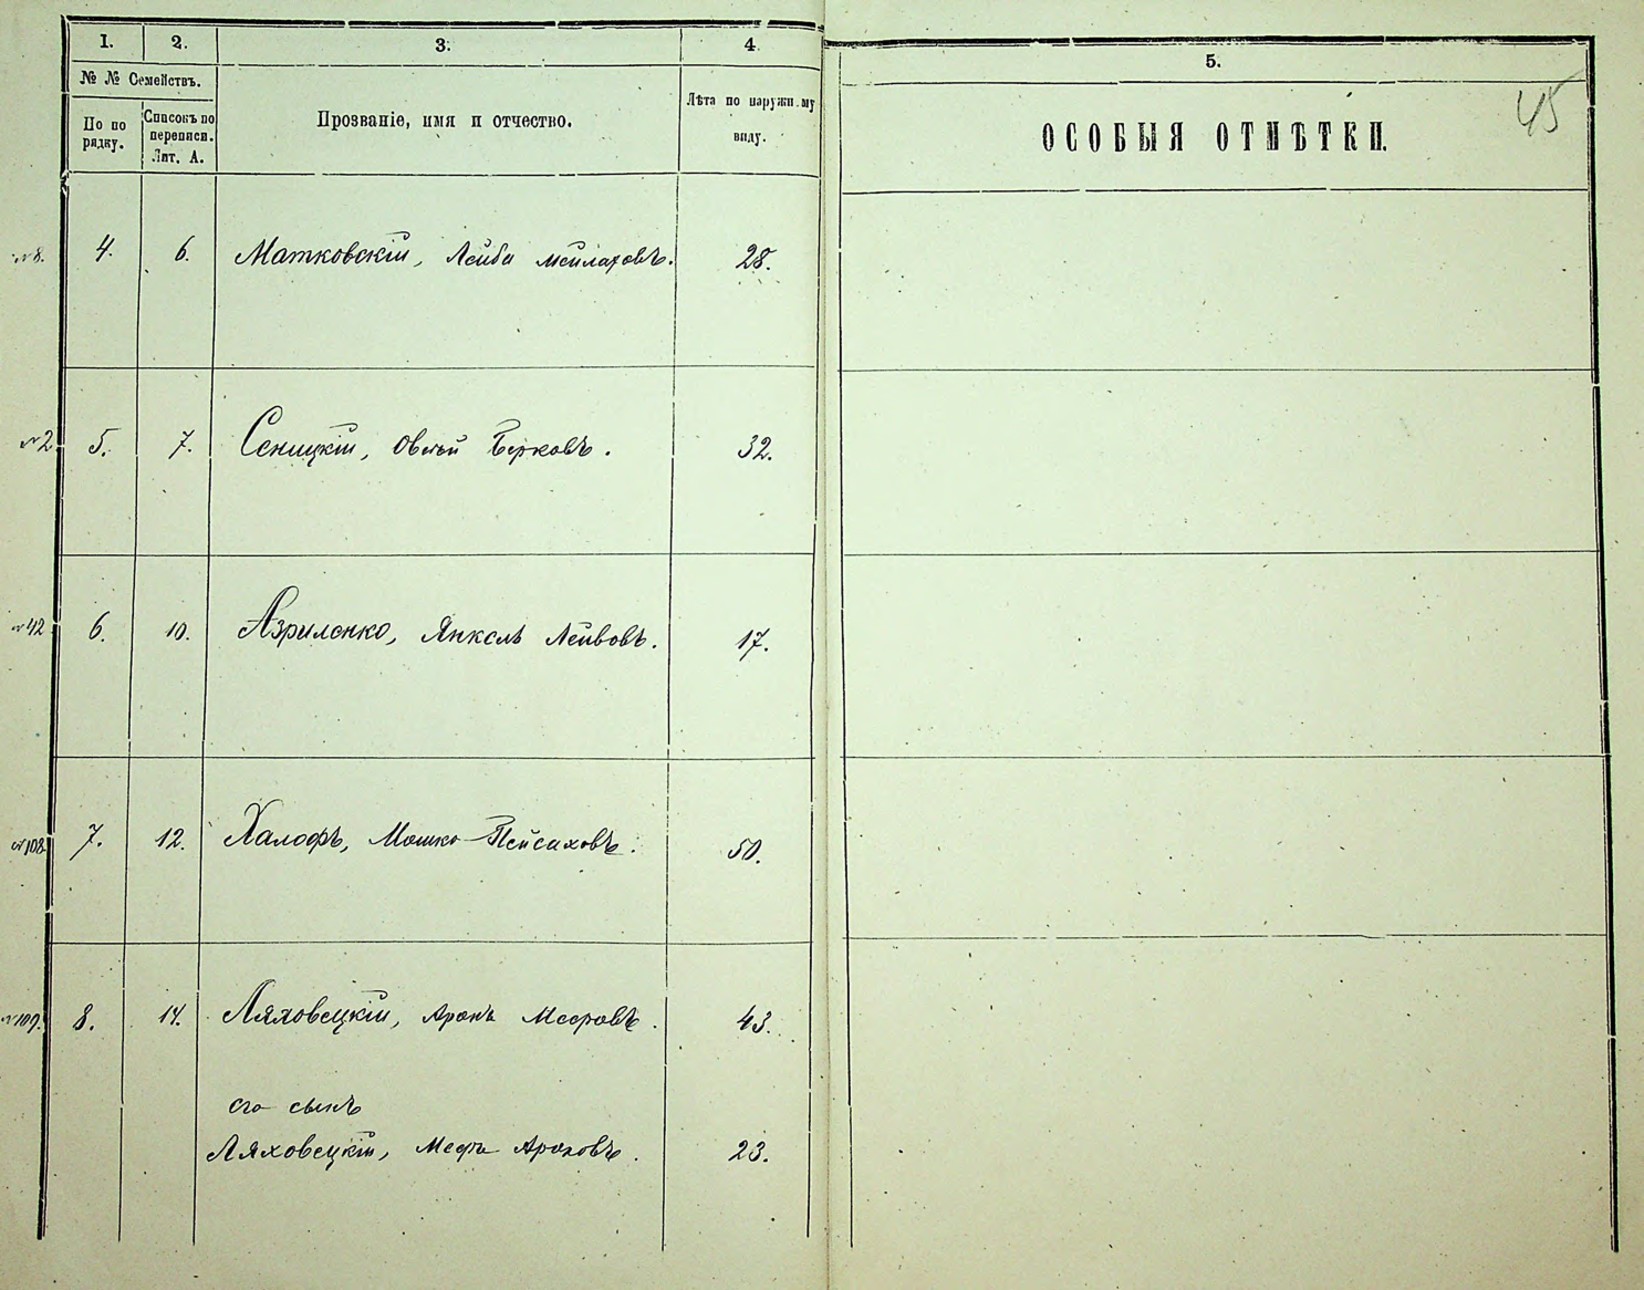 1. 2. 3. 4. 5.
№ № Семействъ.
По порядку.
Списокъ по переписи. Лит. А.
Прозваніе, имя и отчество.
Лѣта по наружному виду.
ОСОБЫЯ ОТМѢТКИ.
45
№8. 4. 6. Матковскій, Лейба Мейлаховъ. 28.
№2 5. 7. Сеницкій, Овсѣй Берковъ. 32.
№42 6. 10. Азриленко, Янкель Лейвовъ. 17.
№108 7. 12. Халофъ, Мошко-Пейсаховъ. 50.
№109. 8. 14. Ляховецкій, Аронъ Мееровъ. 43.
его сынъ
Ляховецкій, Мееръ Ароновъ. 23.